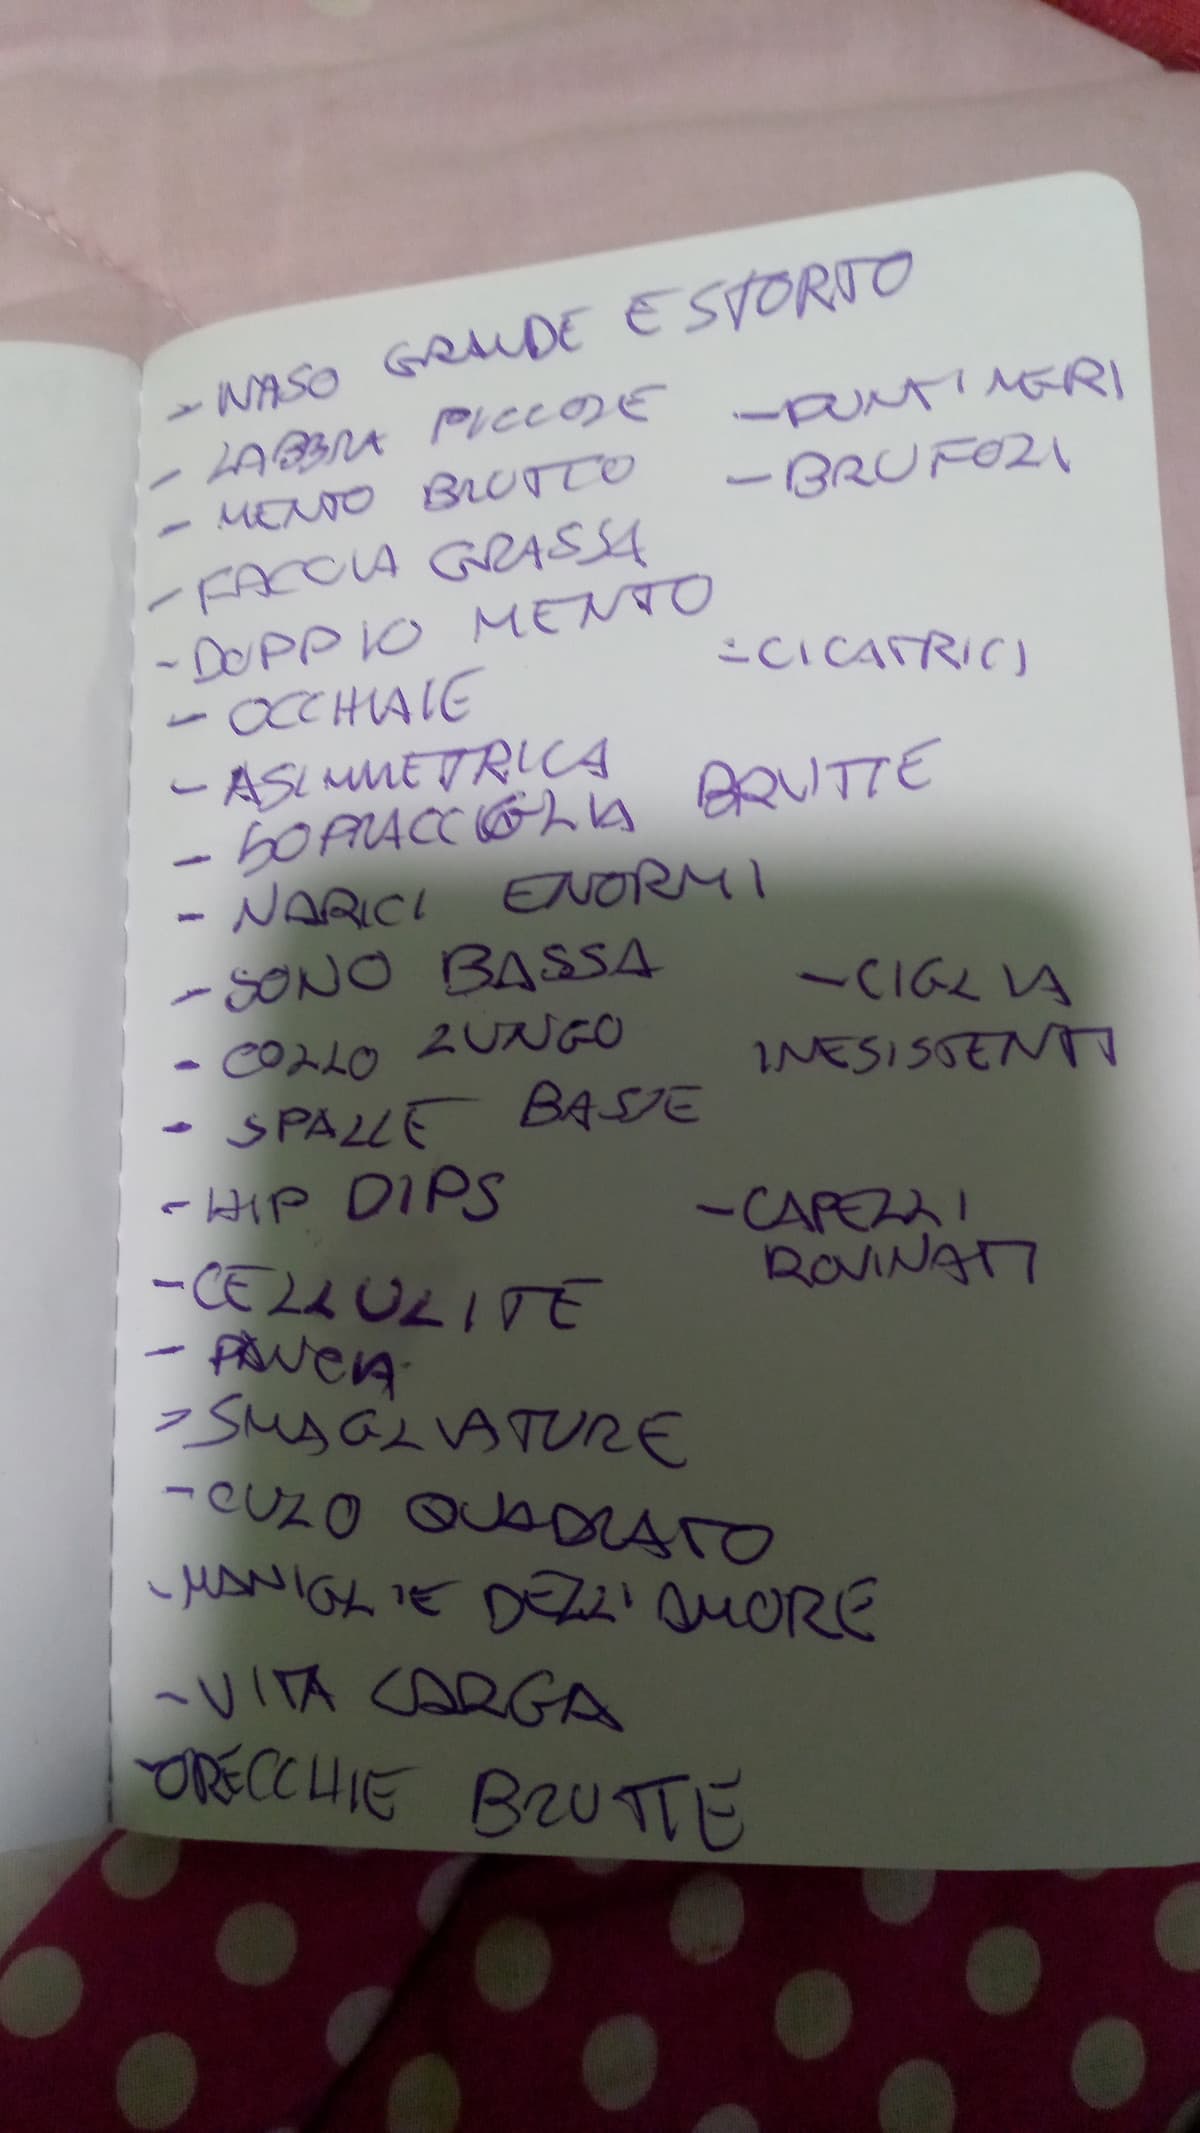 - NASO GRANDE E STORTO
- LABBRA PICCOLE
- PUNTI NERI
- MENTO BRUTTO
- BRUFOLI
- FACCIA GRASSA
- DOPPIO MENTO
- CICATRICI
- OCCHIAIE
- ASIMMETRICA
- SOPRACCIGLIA BRUTTE
- NARICI ENORMI
- SONO BASSA
- CIGLIA
INESISTENTI
- COLLO LUNGO
- SPALLE BASSE
- HIP DIPS
- CAPELLI
ROVINATI
- CELLULITE
- PANCIA
- SMAGLIATURE
- CULO QUADRATO
- MANIGLIE DELL'AMORE
- VITA LARGA
- ORECCHIE BRUTTE